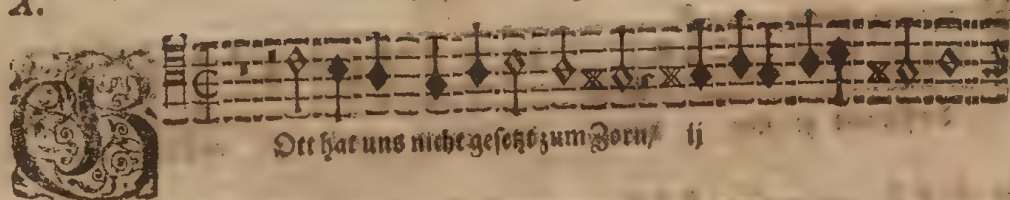 A.
GOtt hat uns nicht gesetzt zum Zorn/ ij